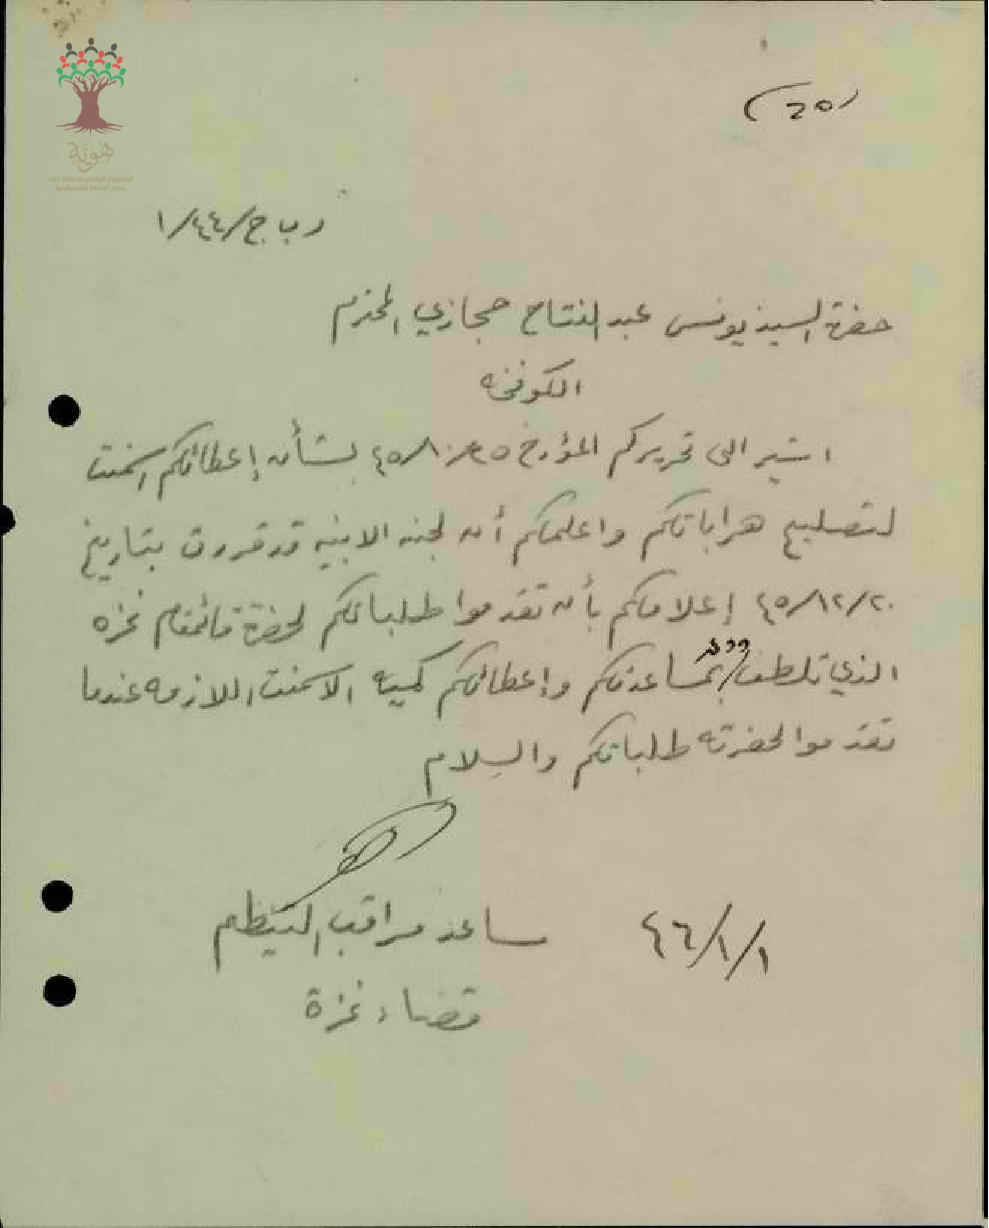 هوية
المشروع الوطني للحفاظ على
جذور العائلة الفلسطينية
(٢٥)
ر ب ج/٤٤/١
حضرة السيد يونس عبد الفتاح حجازي المحترم
الكوفخه
اشير الى تحريركم المؤرخ بشأن إعطائكم اسمنت
لتصليح هراباتكم واعلمكم أن لجنه الابنيه قد قررت بتاريخ
٤٥/١٢/٢٠ إعلامكم بأن تقدموا طلباتكم لحضرة قائمقام غزه
الذي تلطف بمساعدتكم وإعطائكم كمية الاسمنت اللازمه عندما
تقدموا لحضرته طلباتكم والسلام
٤٦/١/١
مساعد مراقب التنظيم
قضاء غزة